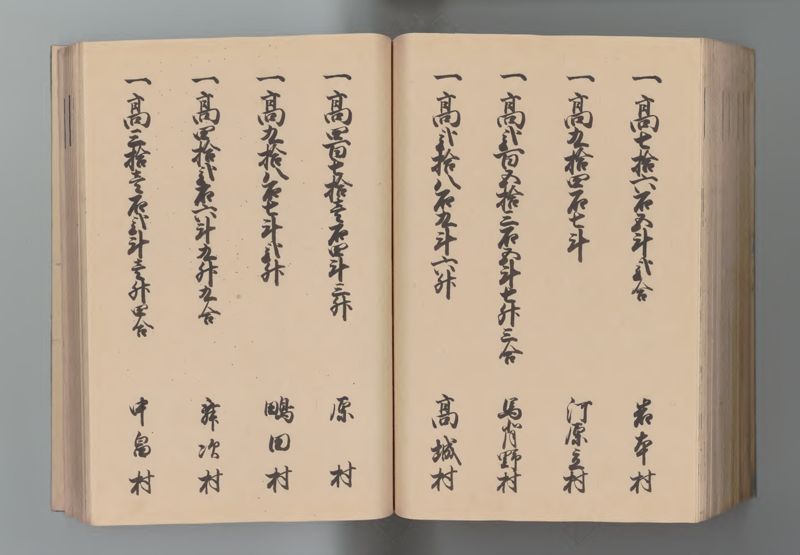 一高七拾六石五斗弐合
岩本村
一高九拾四石七斗
河原立村
一高弐百五拾三石五斗七升三合
馬背野村
一高弐拾八石九斗六升
高城村
一高四百七拾壱石四斗三升
原村
一高九拾八石七斗弐升
鴫田村
一高四拾弐石六斗九升九合
舞次村
一高三拾壱石弐斗壱升四合
中畠村